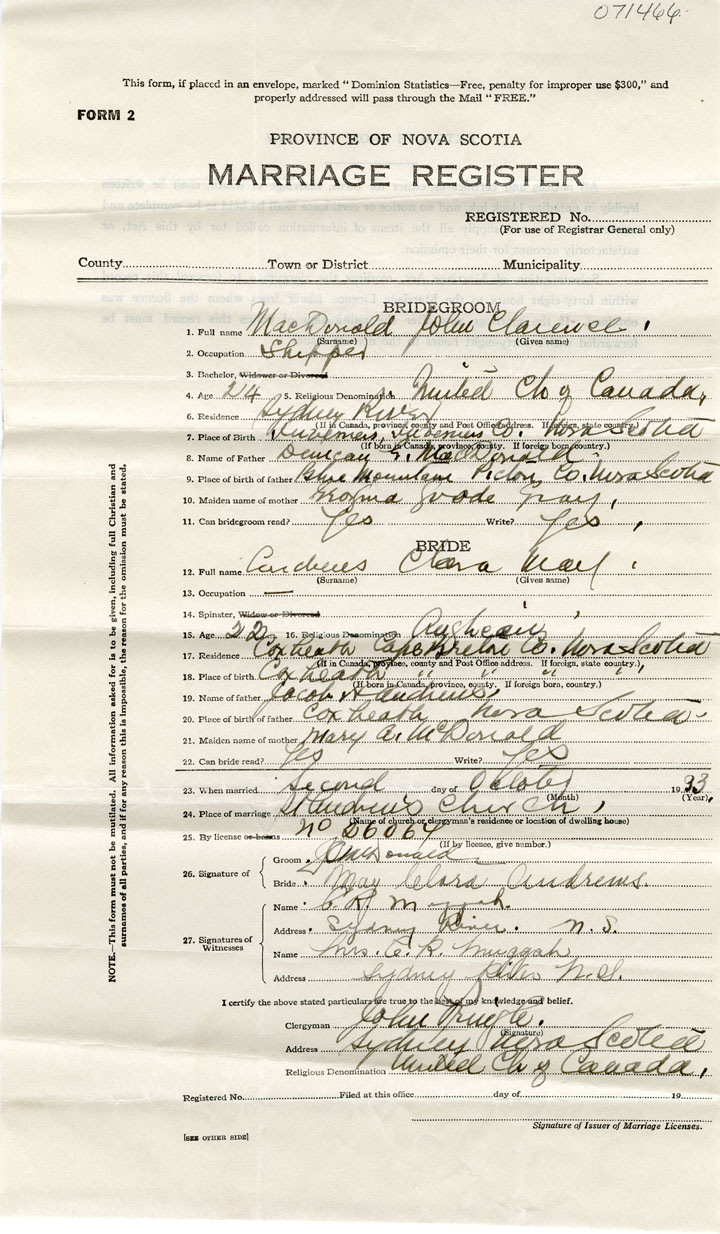 071466.
This form, if placed in an envelope, marked "Dominion Statistics—Free, penalty for improper use $300," and
properly addressed will pass through the Mail "FREE."
FORM 2
PROVINCE OF NOVA SCOTIA
MARRIAGE REGISTER
REGISTERED No.
(For use of Registrar General only)
County Town or District Municipality
BRIDEGROOM
1. Full name MacDonald John Clarence
(Surname) (Given name)
2. Occupation Shipper
3. Bachelor, Widower or Divorced
4. Age 24 5. Religious Denomination United Ch of Canada,
6. Residence Sydney River
(If in Canada, province, county and Post Office address. If foreign, state country.)
7. Place of Birth Inverness, Inverness Co. Nova Scotia
(If born in Canada, province, county. If foreign born, country.)
8. Name of Father Duncan MacDonald
9. Place of birth of father Blue Mountain Pictou Co. Nova Scotia
10. Maiden name of mother Gray,
11. Can bridegroom read? Yes Write? Yes,
BRIDE
12. Full name Andrews Clara May
(Surname) (Given name)
13. Occupation —
14. Spinster, Widow or Divorced
15. Age 22 16. Religious Denomination Anglican
17. Residence Coxheath Cape Breton Co. Nova Scotia
(If in Canada, province, county and Post Office address. If foreign, state country.)
18. Place of birth Coxheath " " " "
(If born in Canada, province, county. If foreign born, country.)
19. Name of father Jacob A Andrews,
20. Place of birth of father Coxheath Nova Scotia
21. Maiden name of mother Mary A. McDonald
22. Can bride read? Yes Write? Yes
23. When married Second day of October 1933
(Month) (Year)
24. Place of marriage St Andrew's Church,
(Name of church or clergyman's residence or location of dwelling house)
25. By license or banns no D6064
(If by licence, give number.)
26. Signature of
Groom J C McDonald
Bride May Clara Andrews.
27. Signatures of Witnesses
Name C. R. Muggah.
Address Sydney River. N.S.
Name Mrs. C. R. Muggah
Address Sydney River N.S.
I certify the above stated particulars are true to the best of my knowledge and belief.
Clergyman John Pringle.
(Signature)
Address Sydney Nova Scotia
Religious Denomination United Ch of Canada,
Registered No. Filed at this office day of 19
Signature of Issuer of Marriage Licenses.
[SEE OTHER SIDE]
NOTE.—This form must not be mutilated. All information asked for is to be given, including full Christian and
surnames of all parties, and if for any reason this is impossible, the reason for the omission must be stated.